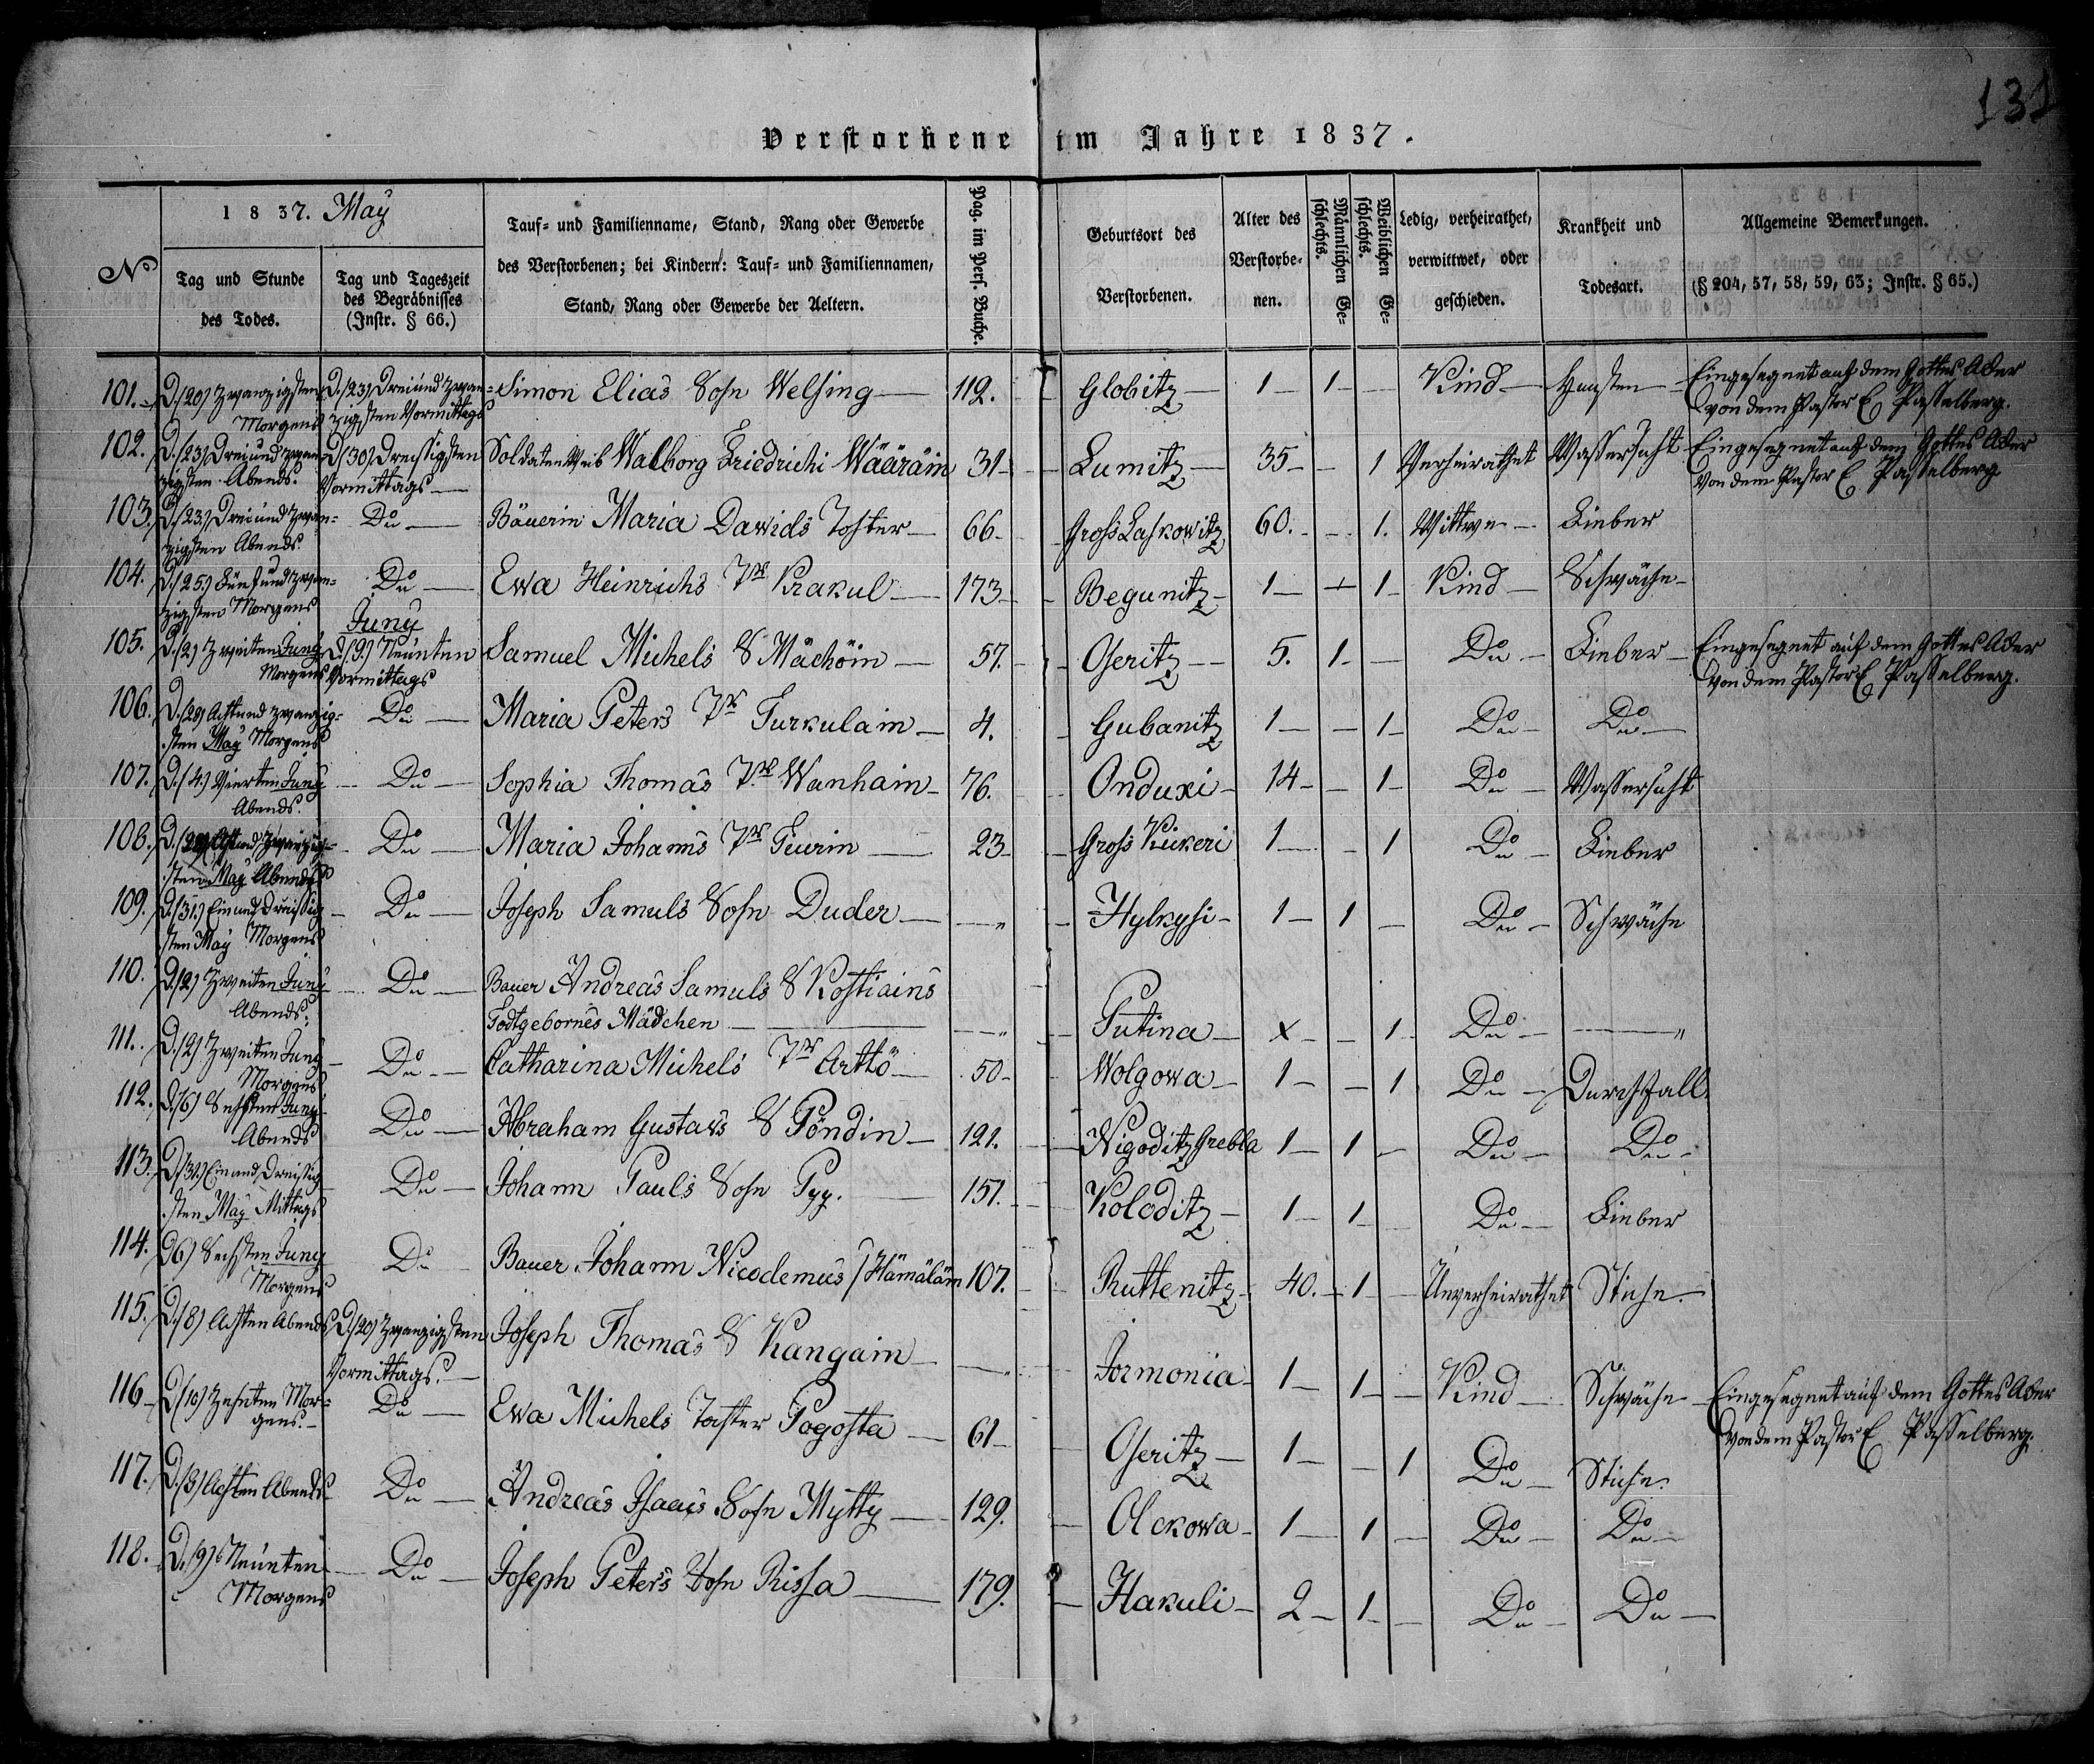 131
Verstorbene im Jahre 1837.
1837. May
Nº
Tag und Stunde des Todes.
Tag und Tageszeit des Begräbnisses (Instr. § 66.)
Tauf= und Familienname, Stand, Rang oder Gewerbe
des Verstorbenen; bei Kindern: Tauf= und Familiennamen,
Stand, Rang oder Gewerbe der Aeltern.
Pag. im Pers. Buche.
Geburtsort des Verstorbenen.
Alter des Verstorbe-nen.
Männlichen Ge-schlechts.
Weiblichen Ge-schlechts.
Ledig, verheirathet, verwittwet, oder geschieden.
Krankheit und Todesart.
Allgemeine Bemerkungen.
(§ 204, 57, 58, 59, 63; Instr. § 65.)
101. D. (20) Zwanzigsten Morgens D. (23) Dreiund zwan= zigsten Vormittags Simon Elias Sohn Welsing 112. Globitz 1 1 Kind Husten Eingesegnet auf dem Gottes Acker
von dem Pastor E Passelberg.
102. D. (23) Dreiund zwan= zigsten Abends. D (30) Dreissigsten Vormittags Soldaten Weib Walborg Friedrichi Wääräin 31 Lumitz 35 1 Verheirathet Wassersucht Eingesegnet auf dem Gottes Acker
von dem Pastor E Passelberg
103. D. (23.) Dreiund zwan= zigsten Abends. Do Bäuerin Maria Dawids Tochter 66. Gross Laskowitz 60. 1. Wittwe Fieber
104. D. (25.) Fünf und zwan= zigsten Morgens Do Ewa Heinrichs Tr Krakul 173 Begunitz 1 1 Kind Schwäche
Juny
105. D. (2.) Zweiten Juny Morgens D. (9.) Neunten Vormittags Samuel Michels S Mächöin 57. Oseritz 5. 1 Do Fieber Eingesegnet auf dem Gottes Acker
von dem Pastor E Passelberg.
106. D. (28) Achtund zwanzig= sten May Morgens Do Maria Peters Tr Turkulain 4. Gubanitz 1 1 Do Do
107. D. (4.) Vierten Juny Abends. Do Sophia Thomas Tr Wanhain 76. Onduxi 14 1 Do Wassersucht
108. D. (28) Achtund zwanzig= sten May Abends Do Maria Johanns Tr Tiurin 23 Gross Kikeri 1 1 Do Fieber
109. D. (31.) Einund Dreissig sten May Morgens Do Joseph Samuls Sohn Duder " Hylkysi 1 1 Do Schwäche
110. D. (2) Zweiten Juny Abends. Do Bauer Andreas Samuls S Kostiains
Todtgebornes Mädchen " Putina x 1 Do "
111. D. (2) Zweiten Juny Morgens Do Catharina Michels Tr Arttö 50 Wolgowa 1 1 Do Durchfall
112. D. (6) Sechsten Juny Abends Do Abraham Gustavs S Pöndin 121. Nigoditz Grebla 1 1 Do Do
113. D. (31.) Einund Dreissig sten May Mittags Do Johann Pauls Sohn Pyy. 151. Koloditz 1 1 Do Fieber
114. D (6) Sechsten Juny Morgens Do Bauer Johann Nicodemus S Hämäläin 107. Ruttenitz 40. 1 Unverheirathet Stiche
115. D. (8) Achten Abends D. (20) Zwanzigsten Vormittags. Joseph Thomas S Kangain " Jormonia 1 1 Kind Schwäche Eingesegnet auf dem Gottes Acker
von dem Pastor E Passelberg.
116 D (10) Zehnten Mor= gens. Do Ewa Michels Tochter Pogosta 61 Oseritz 1 1 Do Stiche.
117. D. (8) Achten Abends Do Andreas Isaacs Sohn Mytty 129. Olckowa 1 1 Do Do
118. D. (9) Neunten Morgens Do Joseph Peters Sohn Rissa 179. Hakuli 2 1 Do Do